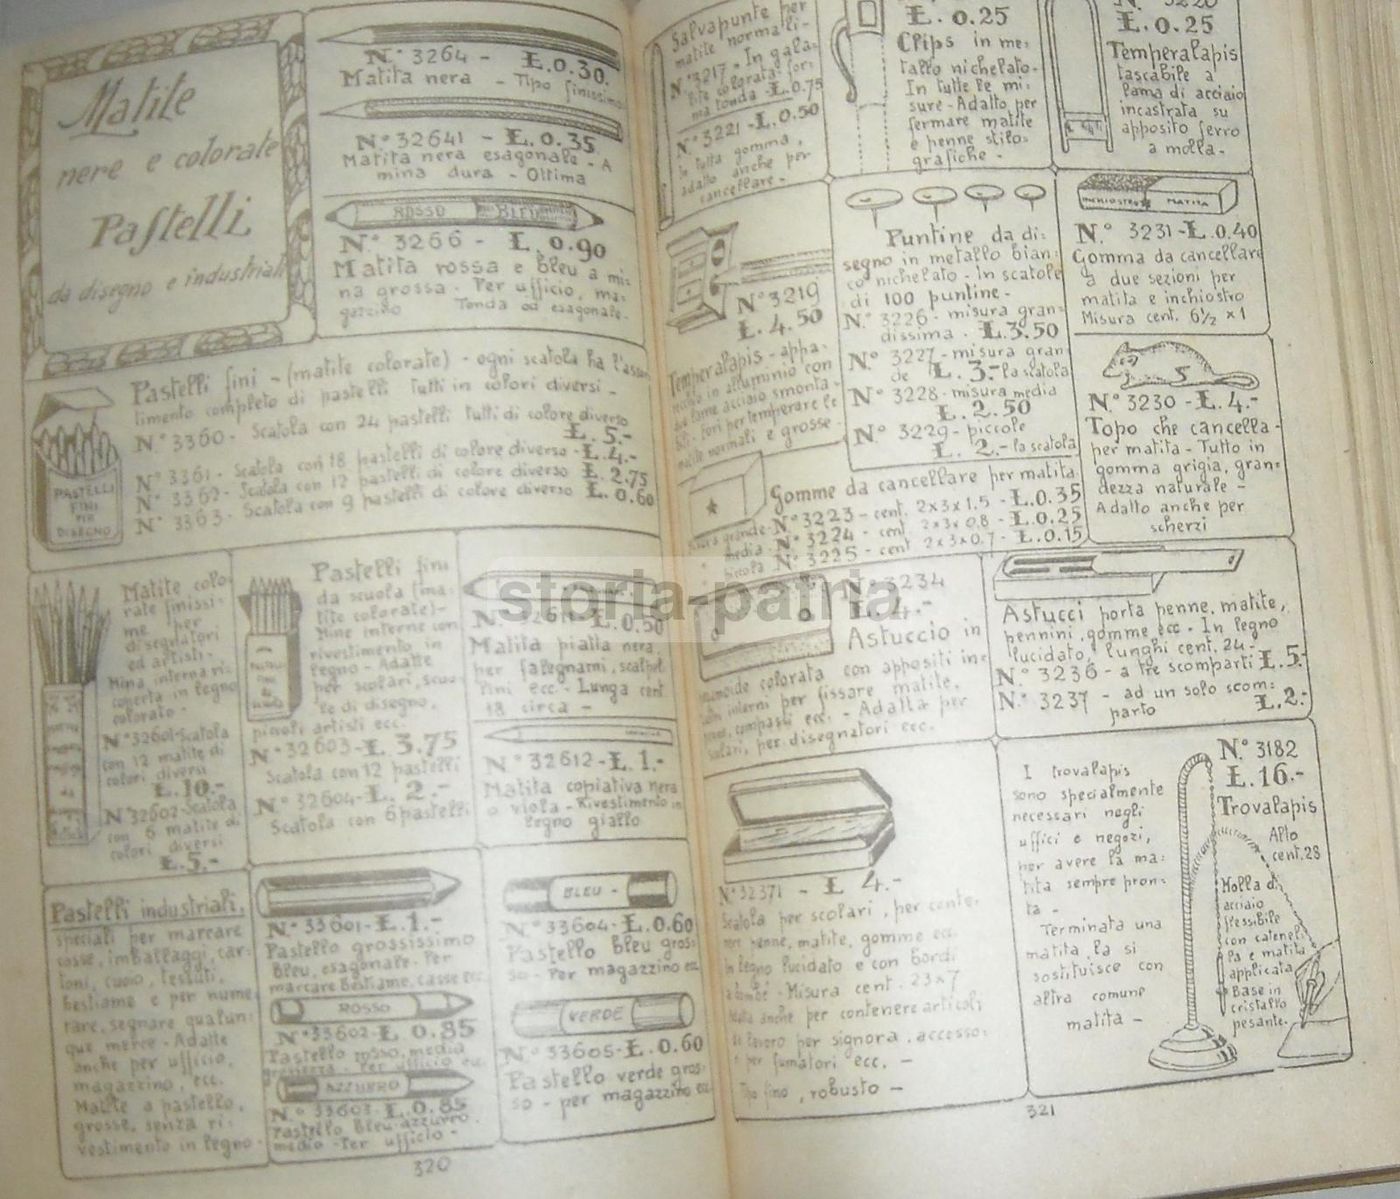 Matite
nere e colorate
Pastelli
da disegno e industriali
N.° 3264 - Ł. 0.30.
Matita nera - Tipo finissimo
N.° 32641 - Ł. 0.35
Matita nera esagonale - A
mina dura - Ottima
ROSSO BLEU
N.° 3266 - Ł. 0.90
Matita rossa e bleu a mi-
na grossa - Per ufficio, ma-
gazzino Tonda od esagonale.
Pastelli fini - (matite colorate) - ogni scatola ha l'assor-
timento completo di pastelli tutti in colori diversi -
N.° 3360 - Scatola con 24 pastelli tutti di colore diverso
Ł. 5.-
N.° 3361 - Scatola con 18 pastelli di colore diverso - Ł. 4.-
N.° 3362 - Scatola con 12 pastelli di colore diverso Ł. 2.75
N.° 3363 - Scatola con 9 pastelli di colore diverso Ł. 0.60
PASTELLI
FINI
PER
DISEGNO
Matite colo-
rate finissi-
me per
disegnatori
ed artisti -
Mina interna ri-
coperta in legno
colorato -
N.° 32601 - Scatola
con 12 matite di
colori diversi
Ł. 10.-
N.° 32602 - Scatola
con 6 matite di
colori diversi
Ł. 5.-
Pastelli fini
da scuola (ma-
tite colorate) -
Mine interne con
rivestimento in
legno - Adatte
per scolari, scuo-
le di disegno,
piccoli artisti ecc.
N.° 32603 - Ł. 3.75
Scatola con 12 pastelli
N.° 32604 - Ł. 2.-
Scatola con 6 pastelli
N.° 32611 - Ł. 0.50
Matita piatta nera,
per falegnami, scalpel-
lini ecc - Lunga cent.
18 circa -
N.° 32612 - Ł. 1.-
Matita copiativa nera
o viola - Rivestimento in
legno giallo
Pastelli industriali,
speciali per marcare
casse, imballaggi, car-
toni, cuoio, tessuti,
bestiame e per nume-
rare, segnare qualun-
que merce - Adatte
anche per ufficio,
magazzino, ecc.
Matite a pastello,
grosse, senza ri-
vestimento in legno -
N.° 33601 - Ł. 1.-
Pastello grossissimo
Bleu, esagonale - Per
marcare Bestiame, casse ecc.
ROSSO
N.° 33602 - Ł 0.85
Pastello rosso, media
grossezza - Per ufficio ecc.
AZZURRO
N.° 33603 - Ł. 0.85
Pastello Bleu-azzurro
medio - Per ufficio -
BLEU -
N.° 33604 - Ł. 0.60
Pastello bleu gros-
so - Per magazzino ecc
VERDE
N.° 33605 - Ł. 0.60
Pastello verde gros-
so - per magazzino ecc
320
Salvapunte per
matite normali -
N.° 3217 - In gala-
lite colorata for-
ma tonda - Ł. 0.75
N.° 3221 - Ł. 0.50
In tutta gomma,
adatto anche per
cancellare -
Ł. 0.25
Clips in me-
tallo nichelato -
In tutte le mi-
sure - Adatto per
fermare matite
e penne stilo-
grafiche -
N.° 3220
Ł. 0.25
Temperalapis
tascabile a
lama di acciaio
incastrata su
apposito ferro
a molla -
N.° 3219
Ł. 4.50
Temperalapis - appa-
recchio in alluminio con
due lame acciaio smonta-
bili - Fori per temperare le
matite normali e grosse -
Puntine da di-
segno in metallo bian-
co nichelato - In scatole
di 100 puntine -
N.° 3226 - misura gran-
dissima - Ł. 3.50
N.° 3227 - misura gran
de Ł. 3.- la scatola
N.° 3228 - misura media
Ł. 2.50
N.° 3229 - piccole
Ł. 2.- la scatola
INCHIOSTRO MATITA
N.° 3231 - Ł. 0.40
Gomma da cancellare
a due sezioni per
matita e inchiostro
Misura cent. 6½ x 1
N.° 3230 - Ł. 4.-
Topo che cancella -
per matita - Tutto in
gomma grigia, gran-
dezza naturale -
Adatto anche per
scherzi
Gomme da cancellare per matita
grande - N.° 3223 - cent. 2x3x1.5 - Ł. 0.35
media - N.° 3224 - cent. 2x3x0.8 - Ł. 0.25
piccola N.° 3225 - cent 2x3x0.7 - Ł. 0.15
3234
Ł. 4.-
Astuccio in
colorata con appositi in-
terni per fissare matite,
penne, compassi ecc. - Adatta per
scolari, per disegnatori ecc.
Astucci porta penne, matite,
pennini, gomme ecc - In legno
lucidato, lunghi cent. 24 -
N.° 3236 - a tre scomparti Ł. 5.-
N.° 3237 - ad un solo scom-
parto Ł. 2.-
N.° 32371 - Ł 4.-
Scatola per scolari, per conte-
nere penne, matite, gomme ecc.
In legno lucidato e con bordi
a bombé - Misura cent. 23x7
Adatta anche per contenere articoli
di lavoro per signora, accesso-
ri per fumatori ecc. -
Tipo fino, robusto -
I trovalapis
sono specialmente
necessari negli
uffici e negozi,
per avere la ma-
tita sempre pron-
ta -
Terminata una
matita, la si
sostituisce con
altra comune
matita -
N.° 3182
Ł. 16.-
Trovalapis
Alto
cent. 28
Molla di
acciaio
flessibile
con cateniel-
la e matita
applicata
Base in
cristallo
pesante.
321
storia-patria